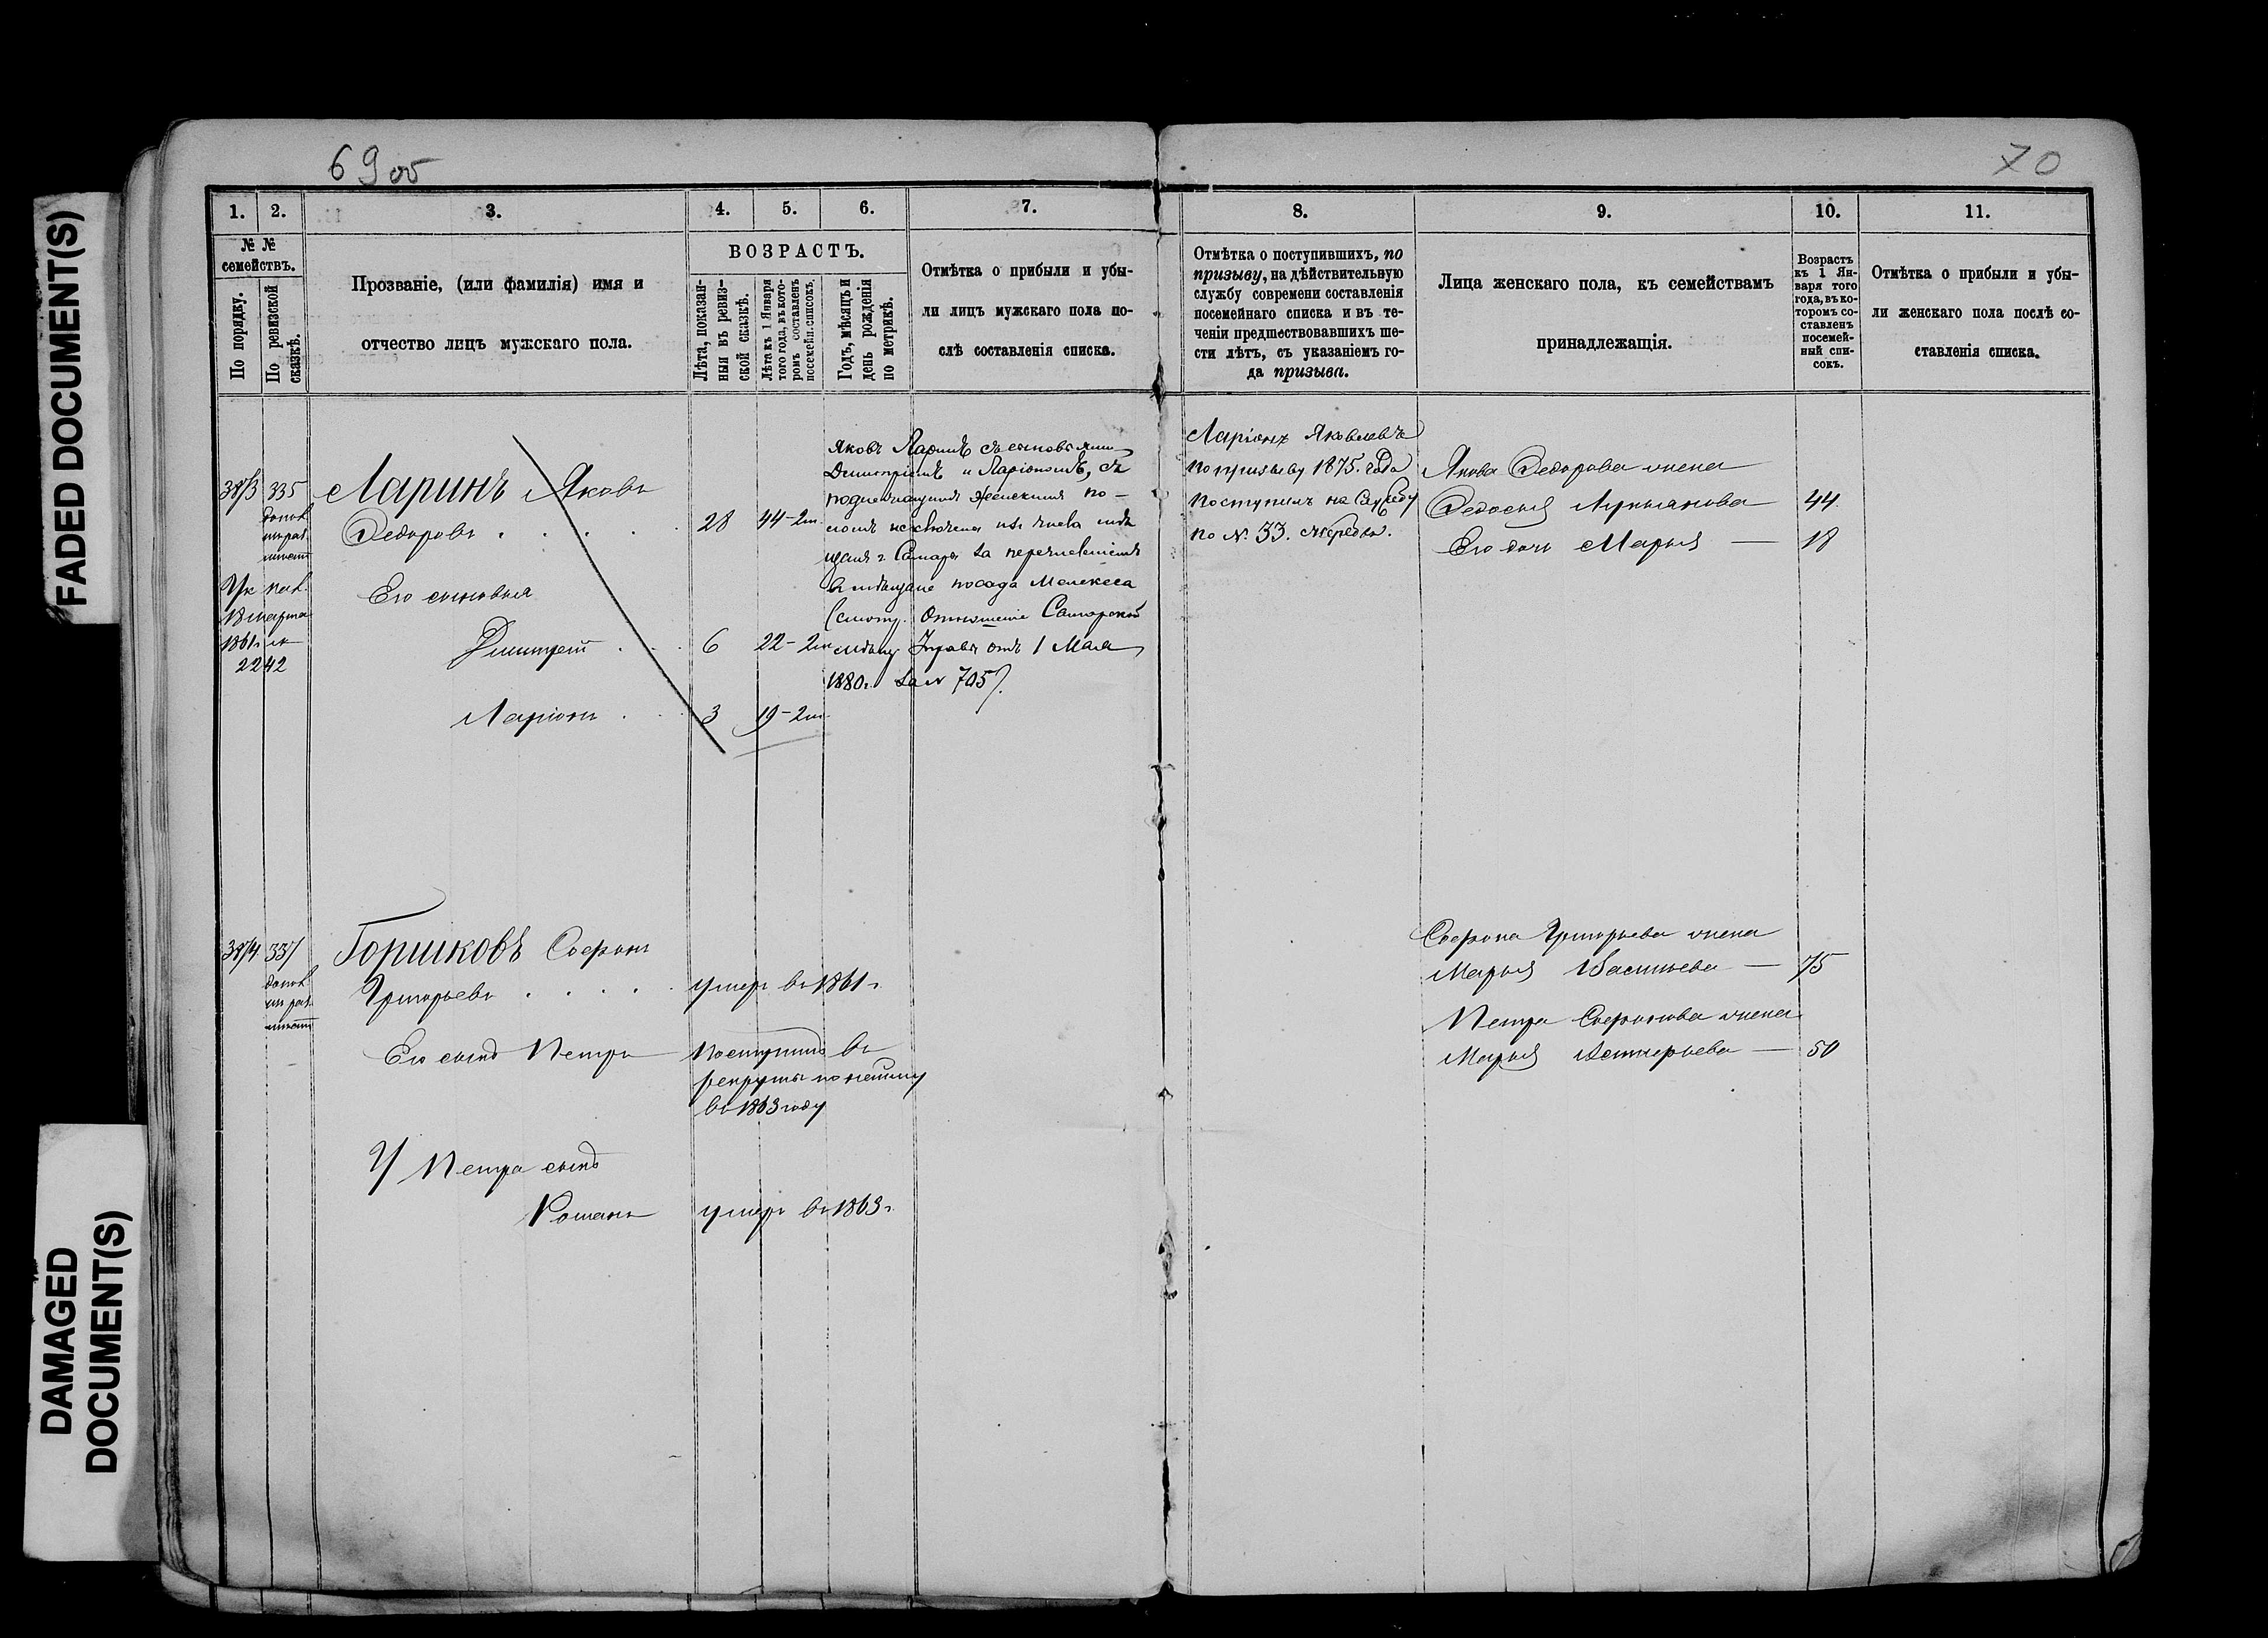 FADED DOCUMENT(S)
DAMAGED
DOCUMENT(S)
69 об
70
1.
2.
3.
4.
5.
6.
7.
8.
9.
10.
11.
№ №
семействъ.
По порядку.
По ревизской
сказкѣ.
Прозваніе, (или фамилія) имя и
отчество лицъ мужскаго пола.
ВОЗРАСТЪ.
Лѣта, показан-
ныя въ ревиз-
ской сказкѣ.
Лѣта къ 1 Января
того года, въ кото-
ромъ составленъ
посемейн. списокъ.
Годъ, мѣсяцъ и
день рожденія
по метрикѣ.
Отмѣтка о прибыли и убы-
ли лицъ мужскаго пола по-
слѣ составленія списка.
Отмѣтка о поступившихъ, по
призыву, на дѣйствительную
службу современи составленія
посемейнаго списка и въ те-
ченіи предшествовавшихъ ше-
сти лѣтъ, съ указаніемъ го-
да призыва.
Лица женскаго пола, къ семействамъ
принадлежащія.
Возрастъ
къ 1 Ян-
варя того
года, въ ко-
торомъ со-
ставленъ
посемей-
ный спи-
сокъ.
Отмѣтка о прибыли и убы-
ли женскаго пола послѣ со-
ставленія списка.
335
Ук. пал.
18 марта
1861 г. №
2242
Ларинъ Яковъ
Федоровъ . . . . 28 44-2м
Его сыновья
Дмитрій . . 6 22-2м
Ларіонъ . . 3 19-2м
Яковъ Ларинъ съ сыновьями
Дмитріемъ и Ларіономъ, съ
женскимъ по-
ломъ исключены изъ числа мѣ
щанъ г. Самары за перечисленіемъ
въ мѣщане посада Мелекеса
(смотр. Отношеніе Самарской
мѣщ. Управы отъ 1 Мая
1880 г. за № 705).
Ларіонъ Яковлевъ
по призыву 1875. года
поступилъ на Службу
по № 33. жеребья.
Якова Федорова жена
Федосья Лукьянова 44.
Его дочь Марья — 18
337
Горшковъ Софронъ
Григорьевъ . . . . умеръ въ 1861 г.
Его сынъ Петръ поступилъ въ
рекруты по найму
въ 1863 году
У Петра сынъ
Романъ умеръ въ 1863 г.
Софрона Григорьева жена
Марья Васильева — 75
Петра Софронова жена
Марья — 50